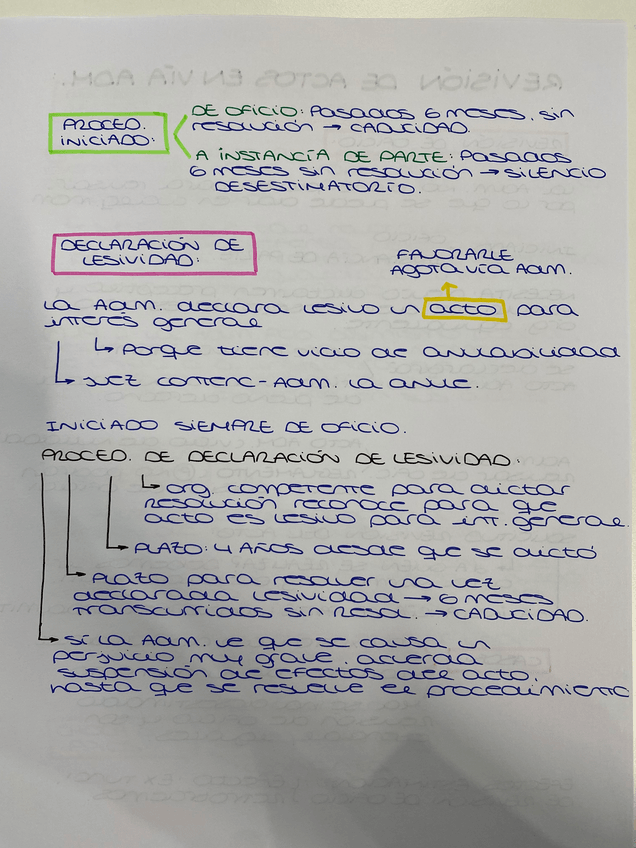 PROCED.
INICIADO:
DE OFICIO: Pasados 6 meses, sin
resolución → CADUCIDAD.
A INSTANCIA DE PARTE: Pasados
6 meses sin resolución → SILENCIO
DESESTIMATORIO.
DECLARACIÓN DE
LESIVIDAD:
FAVORABLE
AGOTA VÍA ADM.
La Adm. declara lesivo un acto para
interés general
↳ Porque tiene vicio de anulabilidad
↳ Juez contenc-Adm. la anule.
INICIADO SIEMPRE DE OFICIO.
PROCED. DE DECLARACIÓN DE LESIVIDAD:
↳ org. competente para dictar
resolución reconoce para que
acto es lesivo para int. general.
→ PLAZO: 4 AÑOS desde que se dictó
→ Plazo para resolver una vez
declarada lesividad → 6 meses
transcurridos sin resol. → CADUCIDAD.
→ Si la Adm. ve que se causa un
perjuicio muy grave, acuerda
suspensión de efectos del acto,
hasta que se resuelve el procedimiento